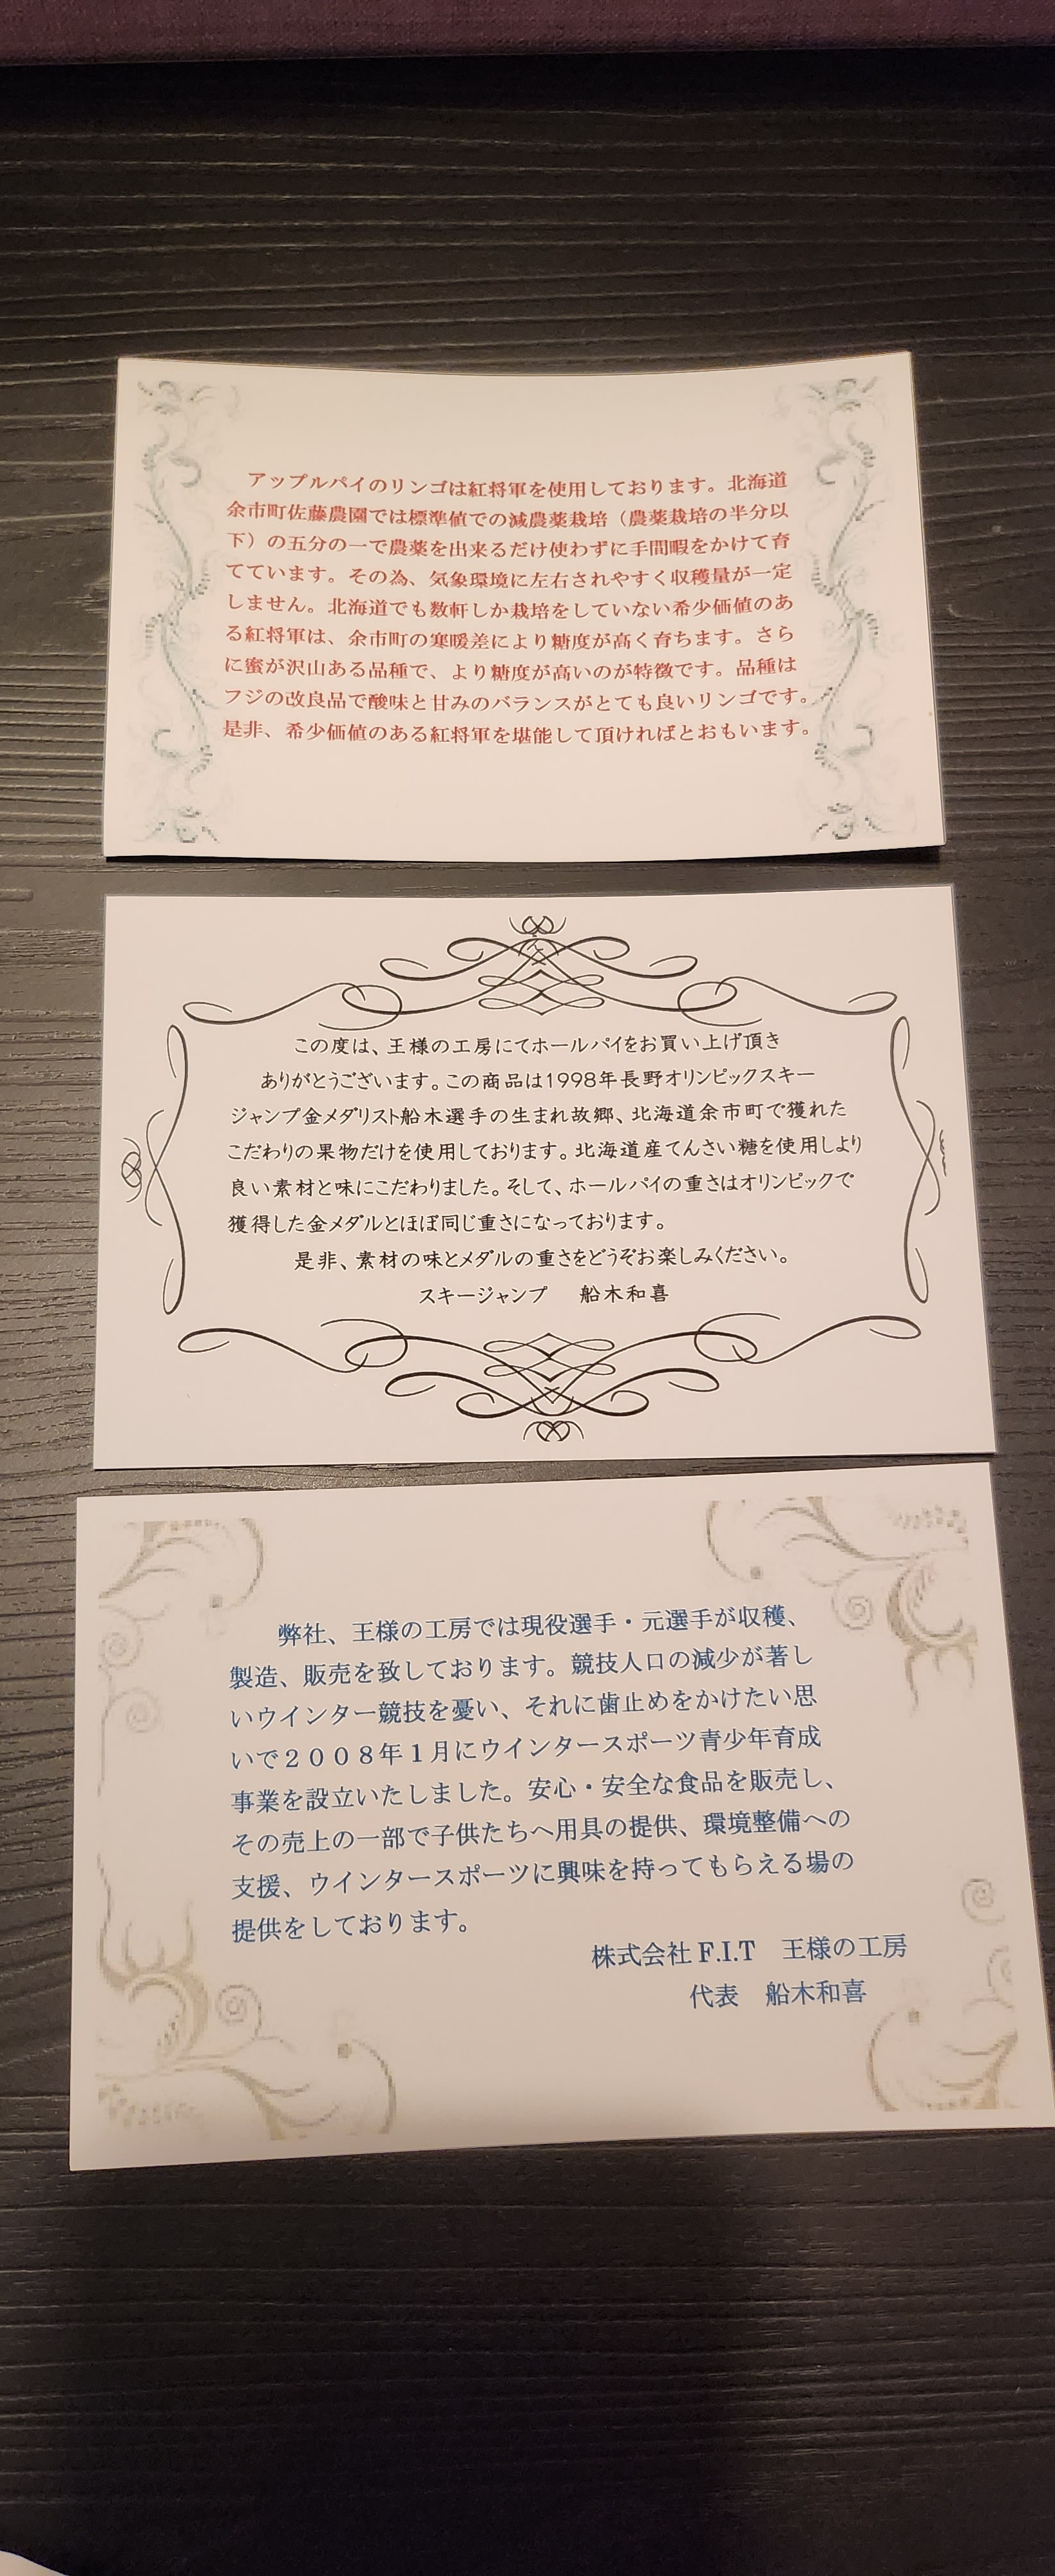 アップルパイのリンゴは紅将軍を使用しております。北海道
余市町佐藤農園では標準値での減農薬栽培（農薬栽培の半分以
下）の五分の一で農薬を出来るだけ使わずに手間暇をかけて育
てています。その為、気象環境に左右されやすく収穫量が一定
しません。北海道でも数軒しか栽培をしていない希少価値のあ
る紅将軍は、余市町の寒暖差により糖度が高く育ちます。さら
に蜜が沢山ある品種で、より糖度が高いのが特徴です。品種は
フジの改良品で酸味と甘みのバランスがとても良いリンゴです。
是非、希少価値のある紅将軍を堪能して頂ければとおもいます。
この度は、王様の工房にてホールパイをお買い上げ頂き
ありがとうございます。この商品は1998年長野オリンピックスキー
ジャンプ金メダリスト船木選手の生まれ故郷、北海道余市町で獲れた
こだわりの果物だけを使用しております。北海道産てんさい糖を使用しより
良い素材と味にこだわりました。そして、ホールパイの重さはオリンピックで
獲得した金メダルとほぼ同じ重さになっております。
是非、素材の味とメダルの重さをどうぞお楽しみください。
スキージャンプ　船木和喜
弊社、王様の工房では現役選手・元選手が収穫、
製造、販売を致しております。競技人口の減少が著し
いウインター競技を憂い、それに歯止めをかけたい思
いで２００８年１月にウインタースポーツ青少年育成
事業を設立いたしました。安心・安全な食品を販売し、
その売上の一部で子供たちへ用具の提供、環境整備への
支援、ウインタースポーツに興味を持ってもらえる場の
提供をしております。
株式会社 F.I.T　王様の工房
代表　船木和喜